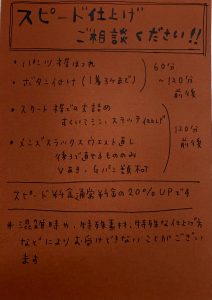 スピード仕上げ
ご相談ください!!
・パンツ裾ほつれ
・ボタン付け(1着3ヶまで)
60分
〜120分
前後
・スカート裾での丈詰め
すくいでミシン、ステッチ仕上げ
・メンズスラックスウエスト直し
後ろで直せるもののみ
Vあき、Gパン類不可
120分
前後
スピード料金通常料金の20%UPです
※混雑時や、特殊素材、特殊な仕上げ方
などによりお受けできないことがござい
ます